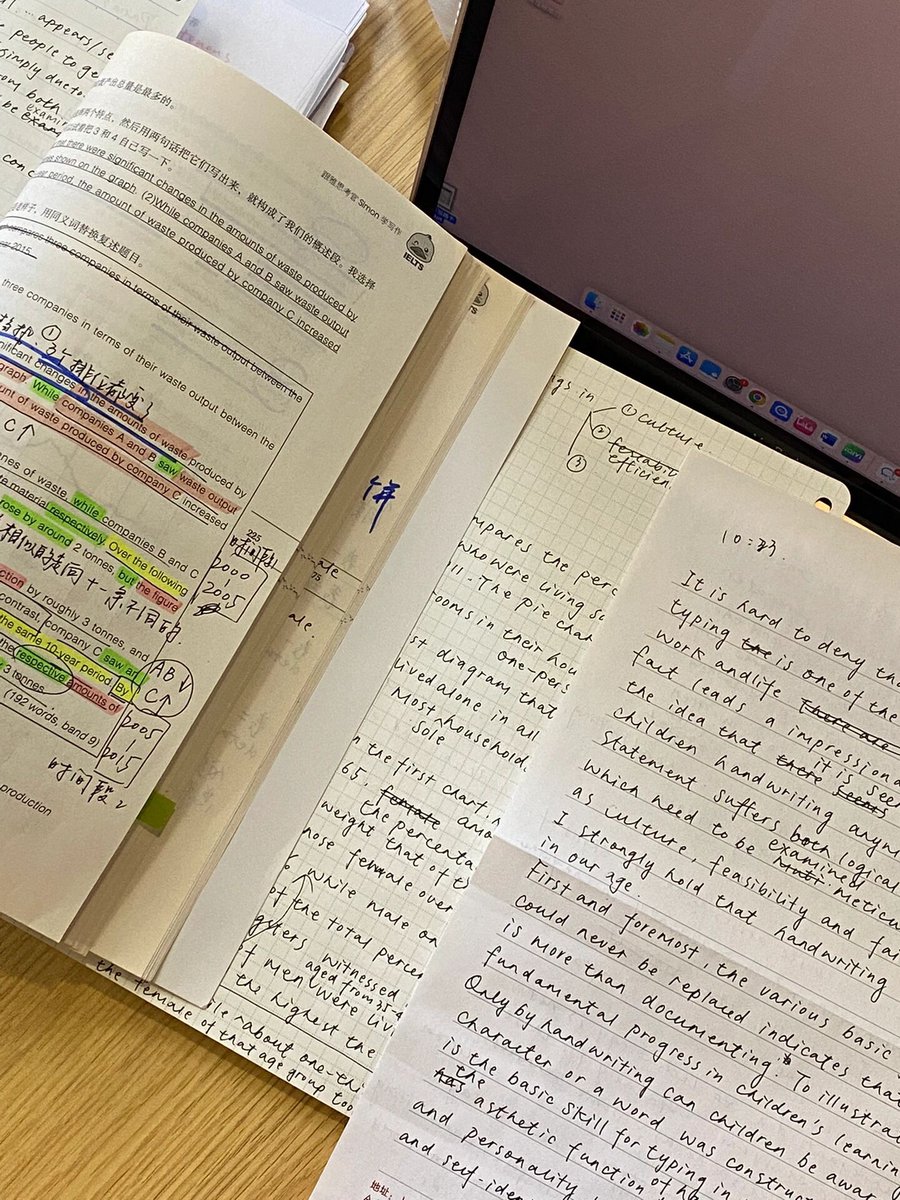 appears/se
people to ge
simply due to
rom both
examin
be exam
con
产出总量是最多的。
两个特点，然后用两句话把它们写出来，就构成了我们的概述段。我选择
把3和4自己写一下。
that there were significant changes in the amounts of waste produced by
shown on the graph. (2)While companies A and B saw waste output
period, the amount of waste produced by company C increased
样子，用同义词替换复述题目。
companies three companies in terms of their waste output between the
2015.
跟雅思考官 Simon 学写作
IELTS
three companies in terms of their waste output between the
①
3个排位都变了
nificant changes in the amounts of waste produced by
graph. While companies A and B saw waste output
unt of waste produced by company C increased
C↑
nes of waste, while companies B and C
te material respectively. Over the following
rose by around 2 tonnes, but the figure
相似的
不同的
ction by roughly 3 tonnes, and
contrast, company C saw an
the same 10-year period. By
the respective amounts of
3 tonnes.
(192 words, band 9)
时间段
2000
2005
AB↓
C↑
2005
2015
时间段
production
饼
225
ale
75
ale.
gs in ① culture.
②
③ efficien
mpares the perce
who were living so
11. The pie char
ooms in their hou
one-pers
st diagram that
lived alone in all
Most household
sole
n the first chart,
65, female and
the percenta
weight that of th
hose female over
6 while male on
of the total percen
gsters witnessed
aged from 35-4
f men were livi
the highest the
ile about one-thi
the female of that age group too
10:23.
It is hard to deny tha
typing the is one of the
work and life There are
fast leads a impression
the idea that it is see
there seems
children handwriting anym
statement suffers both logical
which need to be examined meticu
as culture, feasibility and fai
I strongly hold that handwriting
in our age.
First and foremost, the various basic
could never be replaced indicates that
is more than documenting. To illustrat
fundamental progress in children's learnin
Only by handwriting can children be awar
character or a word was construct
is the basic skill for typing in
has the asthetic function of h
and personality
and self-iden
地址: